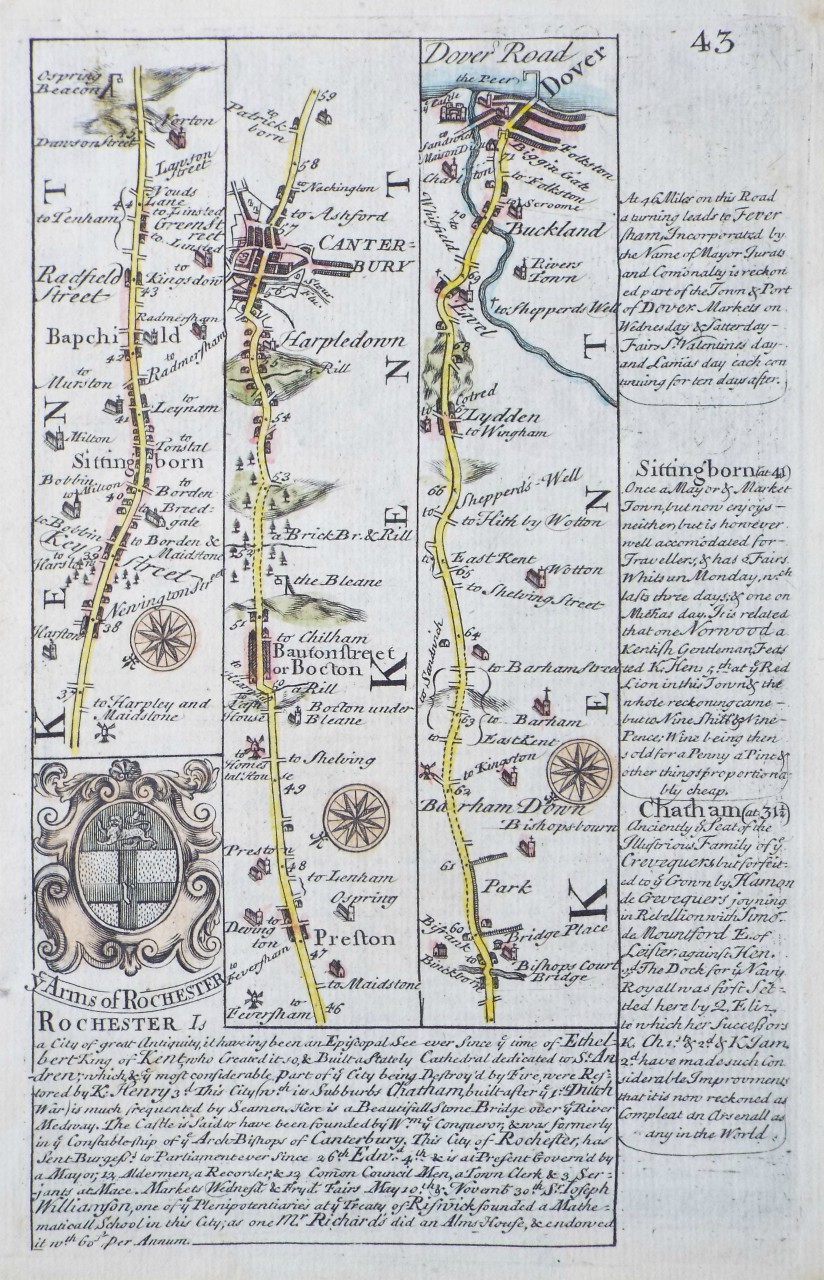 43
Dover Road
the Peer
Dover
Ospring
Beacon
Norton
45
Dawson Street
Lawson
Street
Vouds
Lane
44
to Tenham
to Linsted
Green St
reet
to Linsted
Radfield
Street
to
Kingsdow
43
Radmersham
Bapchild
42
to
Radmersham
to
Murston
to
Leynam
41
Milton
to
Tonstal
Sittingborn
Bobbin
to
Milton
40
to
Borden
Breed-
gate
to Bobbin
Key Street
to Borden &
Maidstone
39
to
Harston
Newington Street
38
Harston
37
to Harpley and
Maidstone
KENT
to
Patrick
born
59
58
to Nackington
to Ashford
57
CANTER-
BURY
Stour
Flu.
56
Harpledown
55
a Rill
54
53
a Brick Br. & Rill
52
the Bleane
51
to Chilham
Bautonstreet
or Bocton
a Rill
Bocton under
Bleane
to
to Shelving
49
Preston
48
to Lenham
Ospring
Deving
ton
Preston
to
Feversham
47
to Maidstone
to
Feversham
46
KENT
ye Castle
to
Sandwich
Maison Dieu
Biggin Gate
to Folkston
71
to Folkston
Charlton
70
Buckland
to
Whitfield
Rivers
Town
69
Ewel
to Shepperds Well
68
Cotred
67
Lydden
to Wingham
66
Shepperds-Well
to Hith by Wotton
East Kent
65
Wotton
to Shelving Street
64
to Sandwich
to Barham Street
63
to
Barham
East Kent
to Kingston
62
Barham Down
Bishopsbourn
61
Park
60
Bridge Place
Bishops Court
Bridge
KENT
At 46 Miles on this Road
a turning leads to Fever
sham, Incorporated by
the Name of Mayor Jurats
and Comonalty is reckon
ed part of the Town & Port
of Dover Markets on
Wednesday & Satterday-
Fairs St. Valentines day
and Lamas day each con
tinuing for ten days after.
Sittingborn (at 41)
Once a Mayor & Market
Town, but now enjoys-
neither, but is however
well accomodated for-
Travellers, & has 2 Fairs
Whitsun Monday, wch
lasts three days; & one on
Mickas day. It is related
that one Norwood a
Kentish Gentleman Feas
ted K. Hen: 5th at ye Red
Lion in this Town & the
whole reckoning came-
but to Nine Shills & Nine-
Pence; Wine being then
sold for a Penny a Pint &
other things proportiona-
bly cheap.
Chatham (at 31½)
Anciently ye Seat of the
Illustrious Family of ye
Crevequers but forfeit-
ed to ye Crown by Hamon
de Crevequers joyning
in Rebellion with Simon
de Mountford E. of
Leister, against Hen.
3d The Dock for ye Navy
Royall was first Set-
tled here by Q. Eliz.
to which her Successors
K. Ch. 1st & 2d & K. Jam.
2d have made such Con
siderable Improvments
that it is now reckoned as
Compleat an Arsenall as
any in the World
ye Arms of ROCHESTER
ROCHESTER Is
a City of great Antiquity, it having been an Episcopal See ever Since ye time of Ethel
bert King of Kent, who Created it so, & Built a Stately Cathedral dedicated to St. An
drew; which, & ye most considerable part of ye City being Destroy'd by Fire, were Res-
tored by K. Henry 3d This City (wth its Subburbs Chatham, built after ye 1st Dutch
War) is much frequented by Seamen. Here is a Beautifull Stone Bridge over ye River
Medway. The Castle is Said to have been founded by Wm ye Conqueror, & was formerly
in ye Constableship of ye Arch-Bishops of Canterbury. This City of Rochester, has
Sent Burgess's to Parliament ever Since 26th Edwd 4th & is at Present Govern'd by
a Mayor, 12 Aldermen, a Recorder, & 12 Comon Council Men, a Town Clerk & 3 Ser-
jants at Mace. Markets Wednesd. & Fryd. Fairs May 19th & Novemb 30th Sr Joseph
Williamson, one of ye Plenipotentiaries at ye Treaty of Riswick founded a Mathe-
maticall School in this City; as one Mr Richards did an Alms House, & endowed
it wth 60s per Annum.